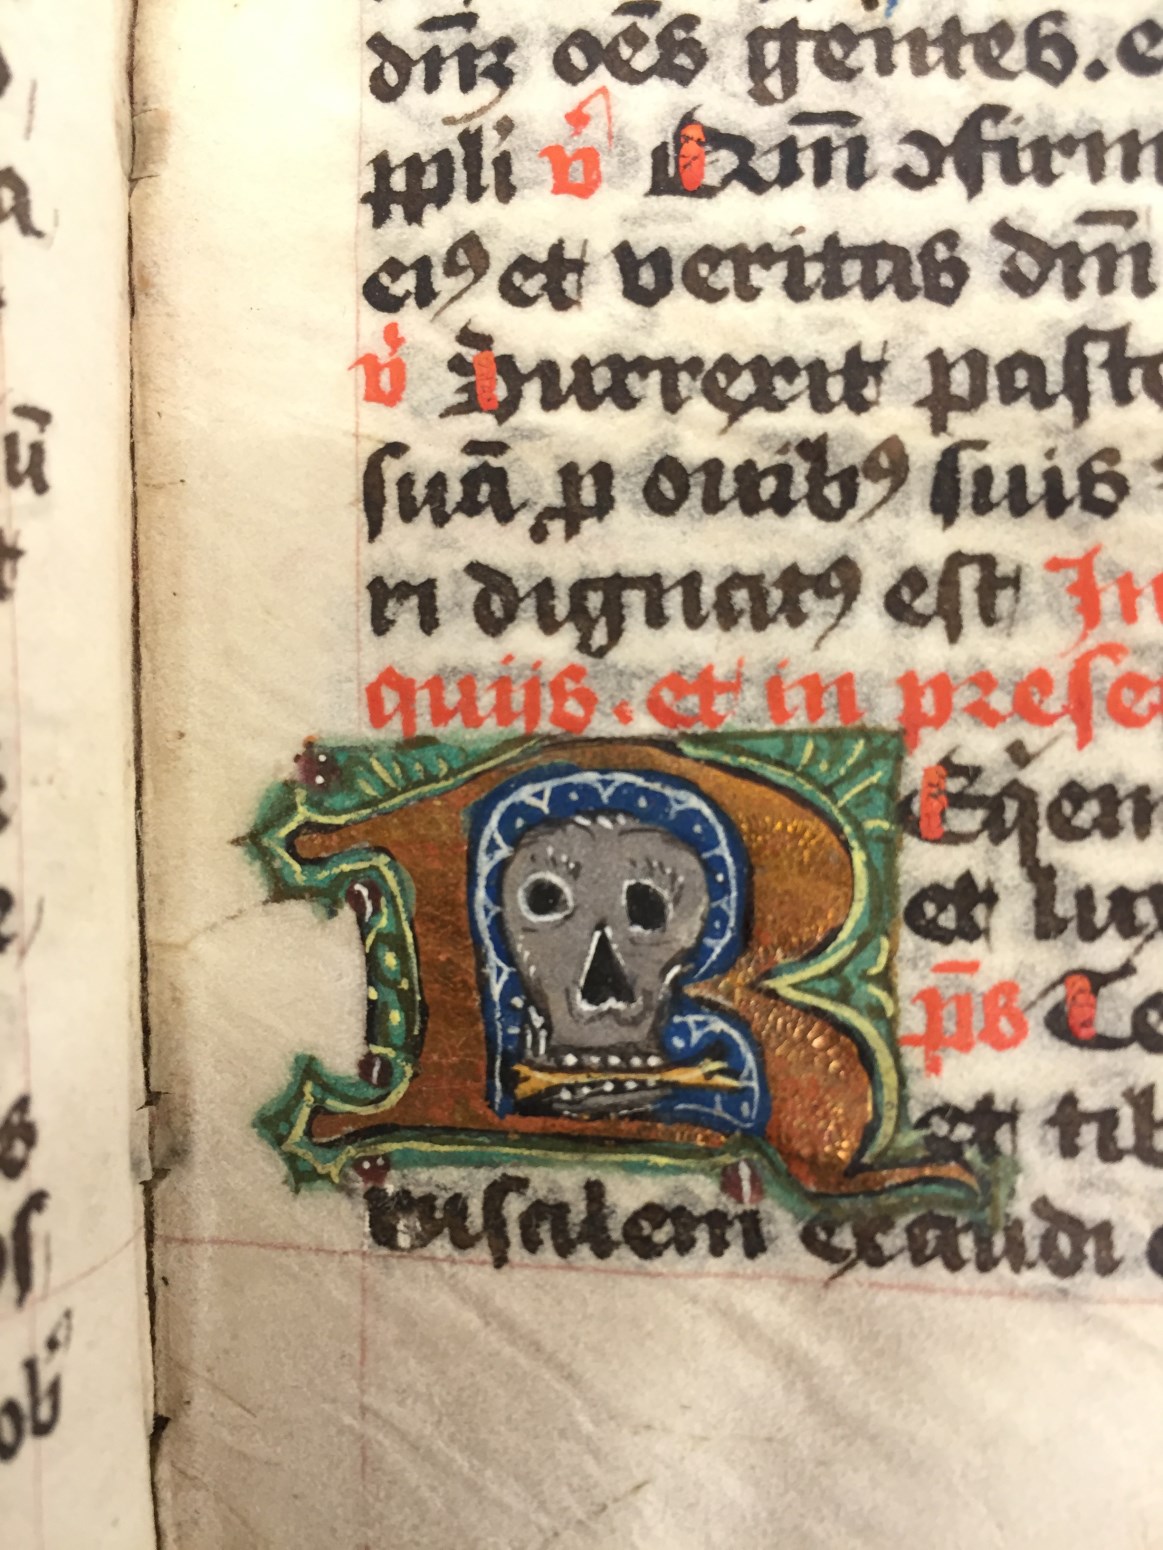 dn̄ꝫ oēs gentes. e
ppli v̊ Qm̄ ꝯfirm
eiꝰ et veritas dm̄
v̊ Surrexit paſto
ſuā ꝓ ouibꝰ ſuis
ri dignatꝰ eſt In
quijs. et in preſe
R Eq̇em
et lux
p̄s Te
et tib
ruſalem exaudi